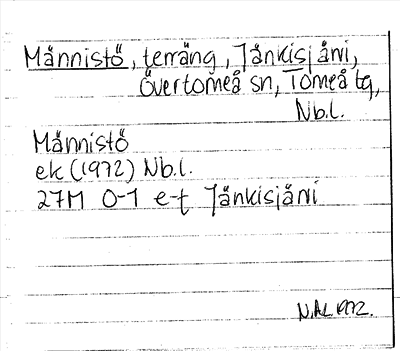 Männistö, terräng, Jänkisjärvi,
Övertorneå sn, Torneå tg,
Nb.l.
Männistö
ek (1972) Nb.l.
27M 0-1 e-f Jänkisjärvi
1972.